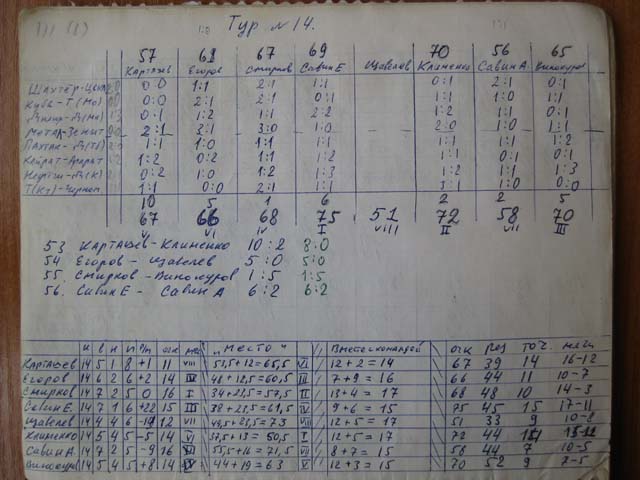 Тур №14.
57 61 67 69 70 56 65
Карташев Егоров Смирков Савин Е Щавелев Клименко Савин А Винокуров
0:0 1:1 2:1 1:1 0:1 2:1 0:1
Куба-Т(Мо) 0:0 2:1 2:1 0:1 1:1 1:0 1:1
0:1 1:2 1:1 2:2 1:2 1:1 0:1
Метал-Зенит 2:1 3:1 3:0 1:0 2:0 1:0 1:1
1:1 1:0 1:1 1:1 1:1 1:1 1:2
Кайрат-Арарат 1:2 0:2 1:1 1:2 1:1 0:1 1:1
0:2 1:0 1:2 1:3 1:2 1:1 1:3
1:1 0:0 2:1 1:1 1:0 0:0
10 5 1 6 2 2 5
67 66 68 75 51 72 58 70
V VI IV I VIII II VII III
53 Карташев-Клименко 10:2 8:0
54 Егоров-Щавелев 5:0 5:0
55. Смирков-Винокуров 1:5 1:5
56. Савин Е - Савин А 6:2 6:2
и в н п р/м очк мес „Место" Вместе с командой очк рез точ. мячи
Карташев 14 5 1 8 +1 11 VIII 53,5+12=65,5 VI 12+2=14 67 39 14 16-12
Егоров 14 6 2 6 +2 14 IV 48+12,5=60,5 III 7+9=16 66 44 11 10-7
Смирков 14 7 2 5 0 16 I 34+23,5=57,5 II 13+4=17 68 48 10 14-3
Савин Е. 14 7 1 6 +22 15 III 38+23,5=61,5 IV 9+6=15 75 45 15 17-11
Щавелев 14 4 4 6 -19 12 VII 49,5+23,5=73 VIII 12+5=17 51 33 9 10-8
Клименко 14 5 4 5 -5 14 V 37,5+13=50,5 I 12+5=17 72 44
Савин А 14 7 2 5 -9 16 55,5+16=71,5 VII 8+7=15 58 44 7 10-5
Винокуров 14 5 4 5 +8 14 44+19=63 V 12+3=15 70 52 9 7-5